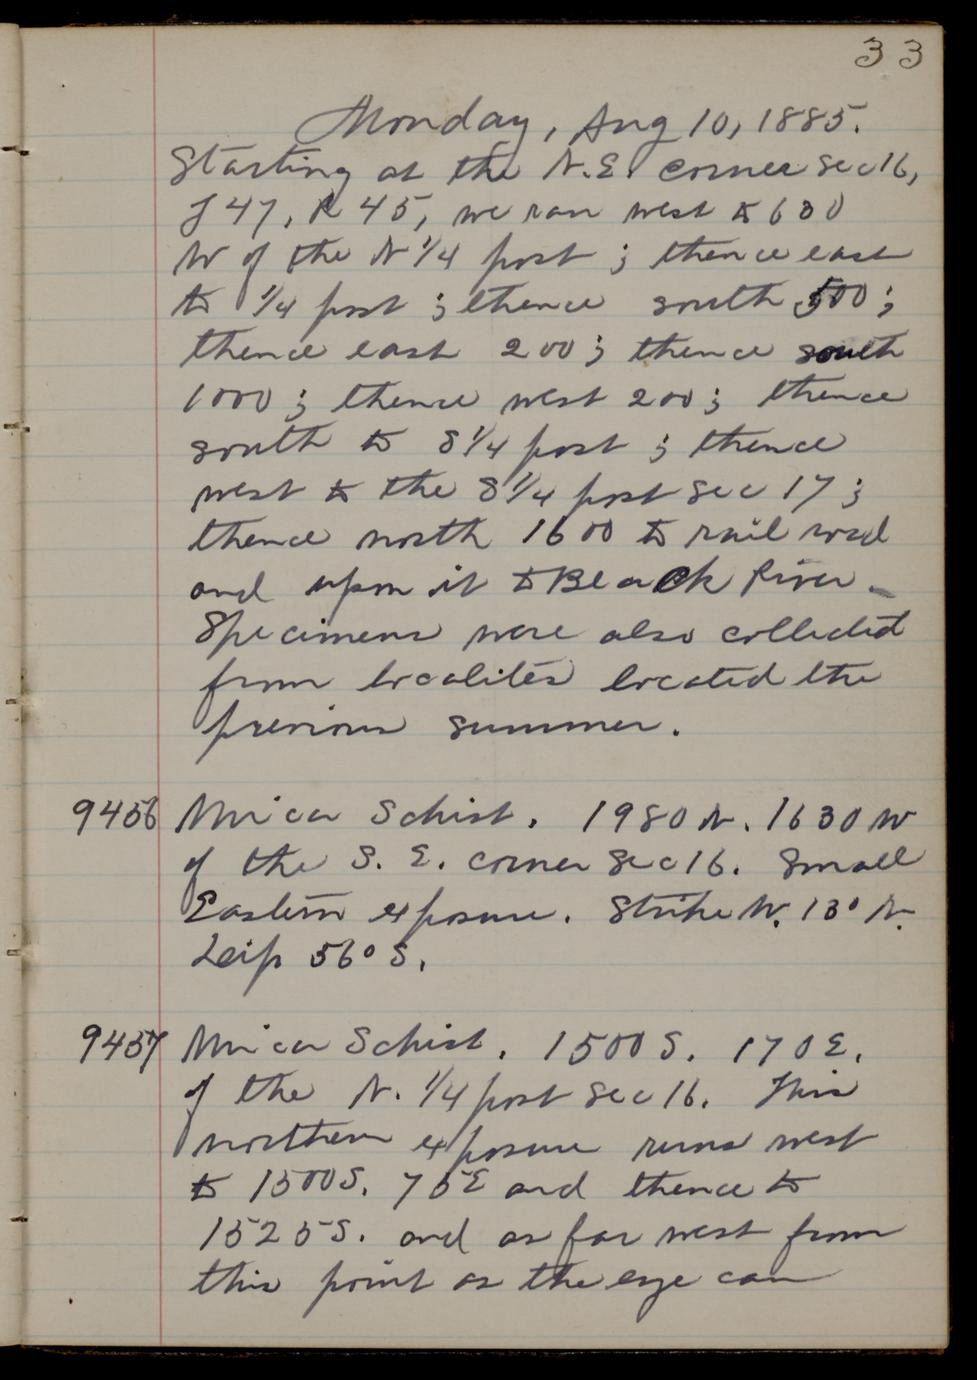 33
Monday, Aug 10, 1885.
Starting at the N.E. corner Sec 16,
T 47, R 45, we ran west to 630
W of the N 1/4 post ; thence east
to 1/4 post ; thence south 500 ;
thence east 200 ; thence south
1000 ; thence west 200 ; thence
south to S 1/4 post ; thence
west to the S 1/4 post Sec 17 ;
thence north 1600 to rail road
and upon it to Black River.
Specimens were also collected
from localites located the
previous summer.
9456 Mica Schist. 1980 N. 1630 W
of the S. E. corner Sec 16. Small
Eastern exposure. Strike W. 13° N.
Dip 56° S.
9457 Mica Schist. 1500 S. 170 E.
of the N. 1/4 post Sec 16. This
northern exposure runs west
to 1500 S. 75 E and thence to
1525 S. and as far west from
this point as the eye can